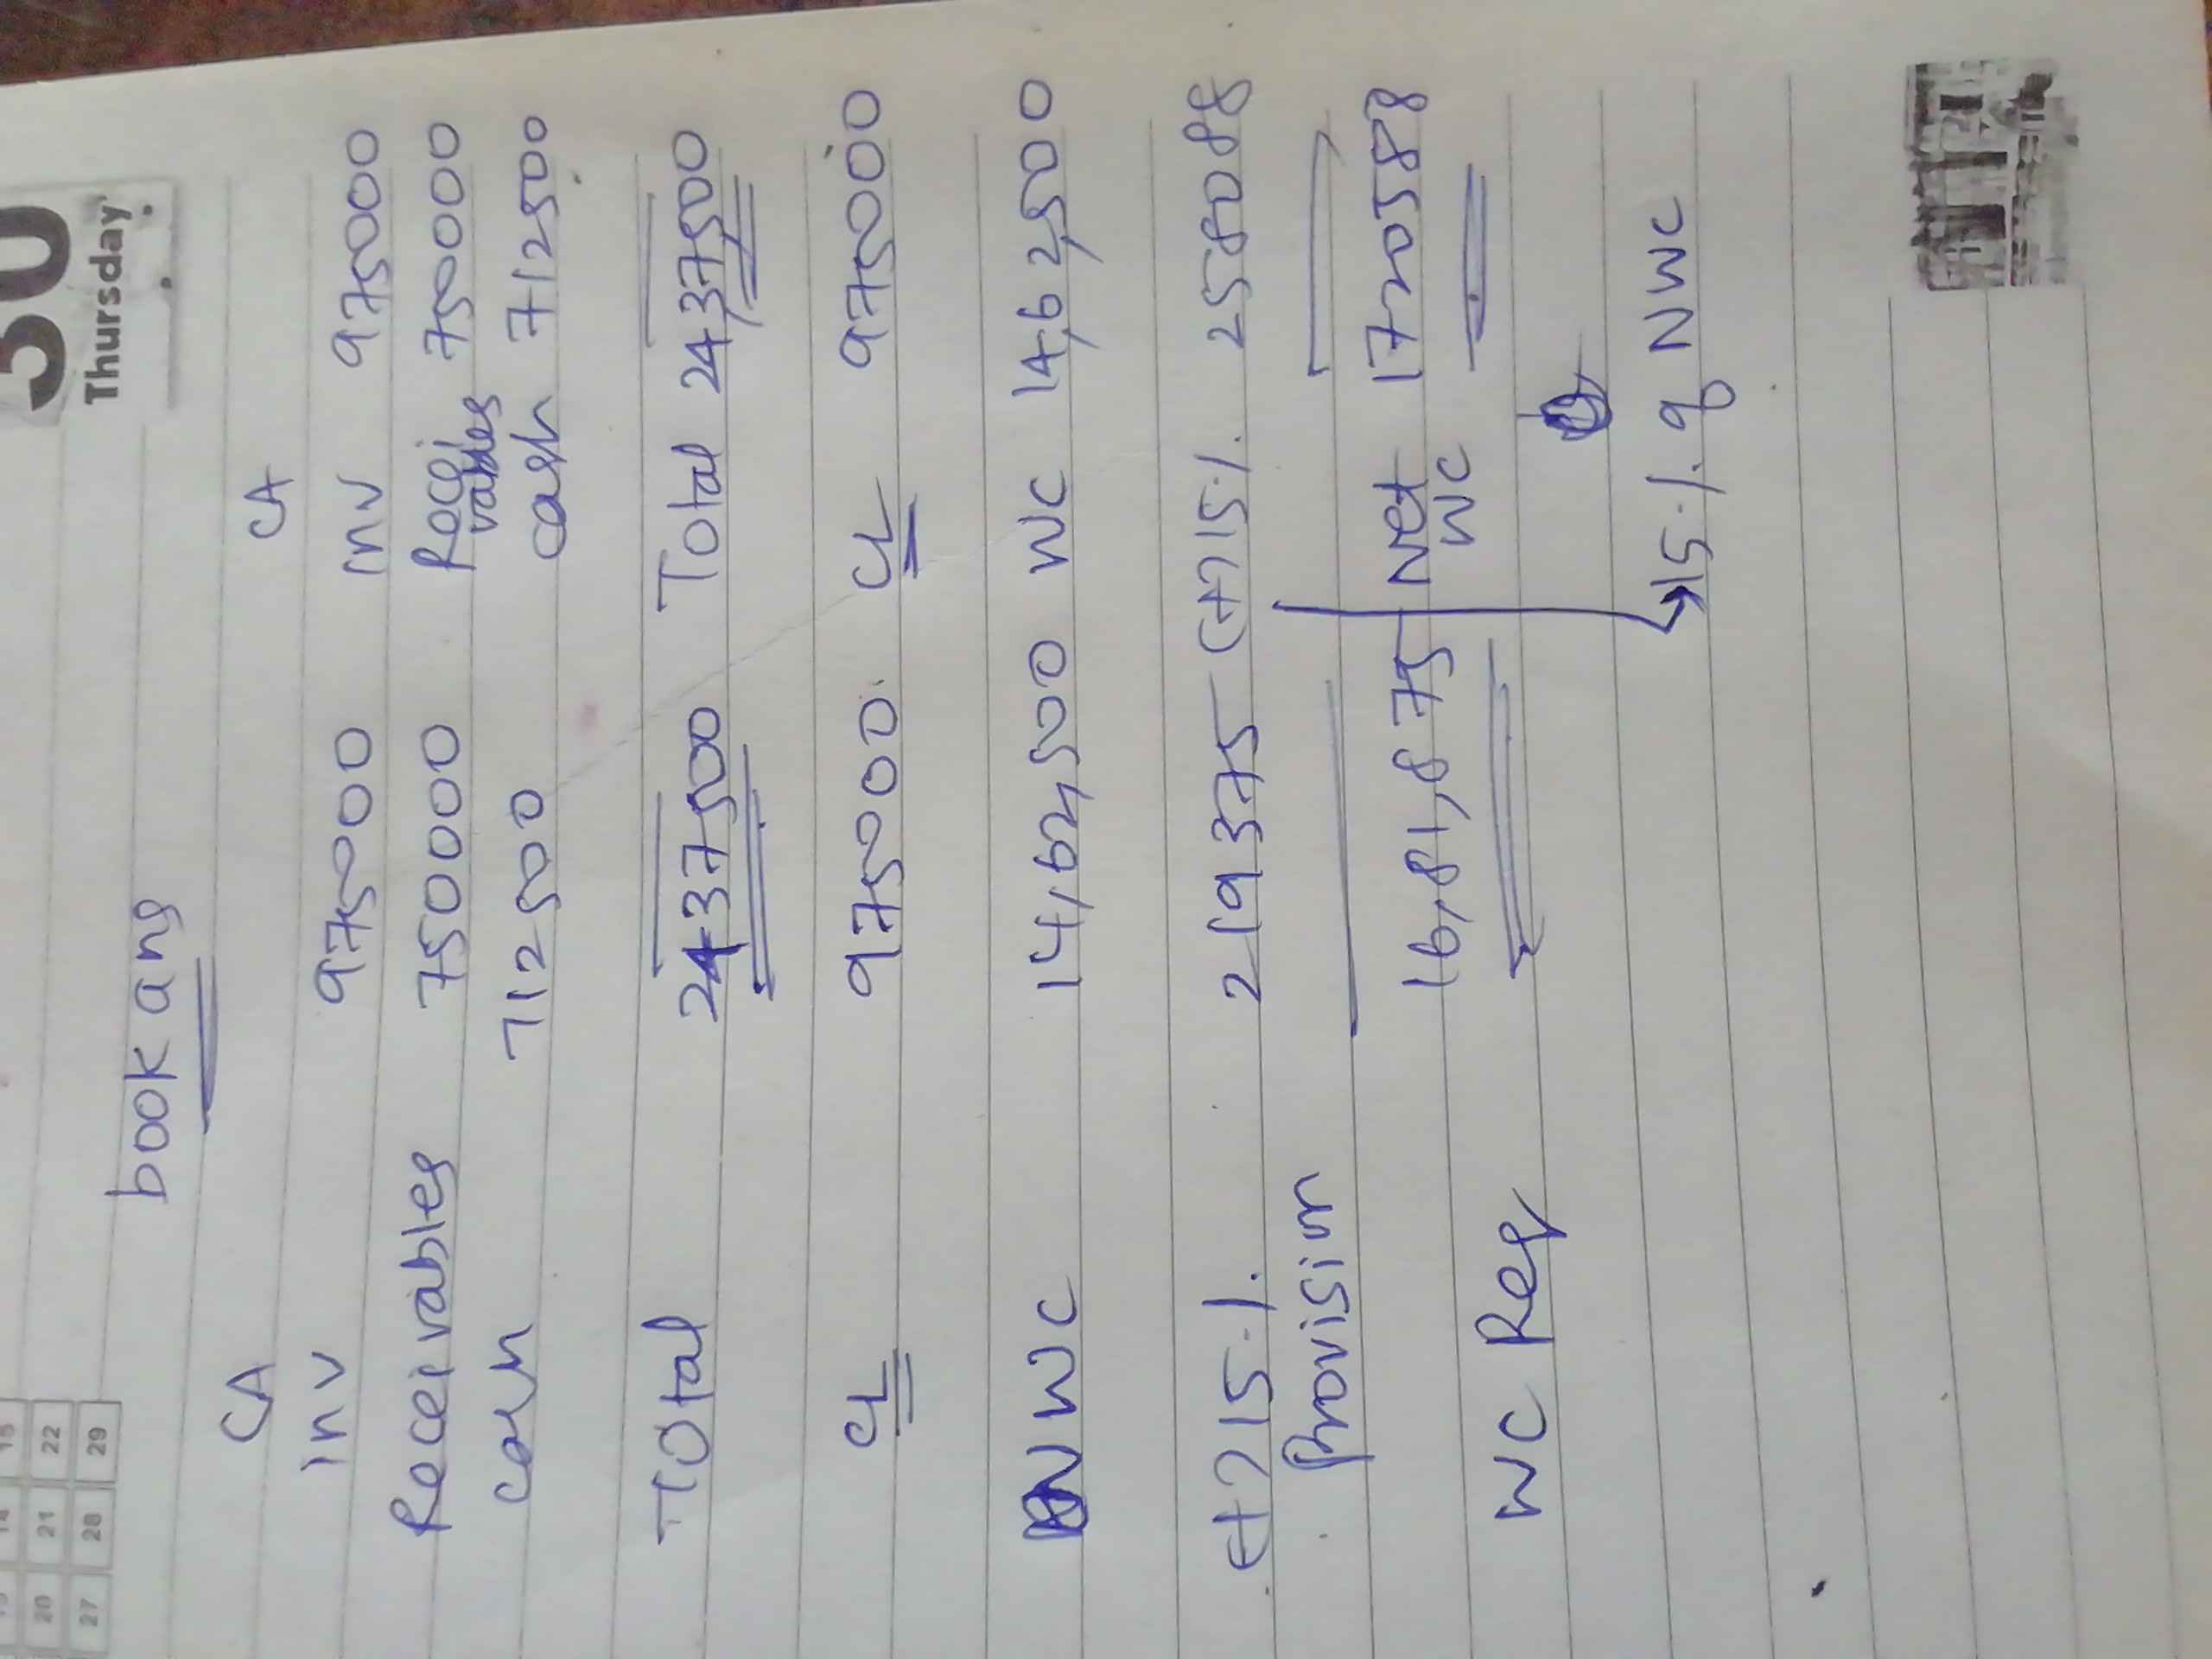 30
Thursday
15
20 21 22
27 28 29
book ans
CA CA
Inv 975000 Inv 975000
Receivables 750000 Recei vables 750000
cash 712500 cash 712500
Total 2437500 Total 24,37,500
CL 975000 CL 975000
NWC 14,62,500 WC 14,62,500
(+) 15% 219375 (+) 15% 258088
Provision
WC Req 16,81,875 Net WC 1720588
→ 15% of NWC